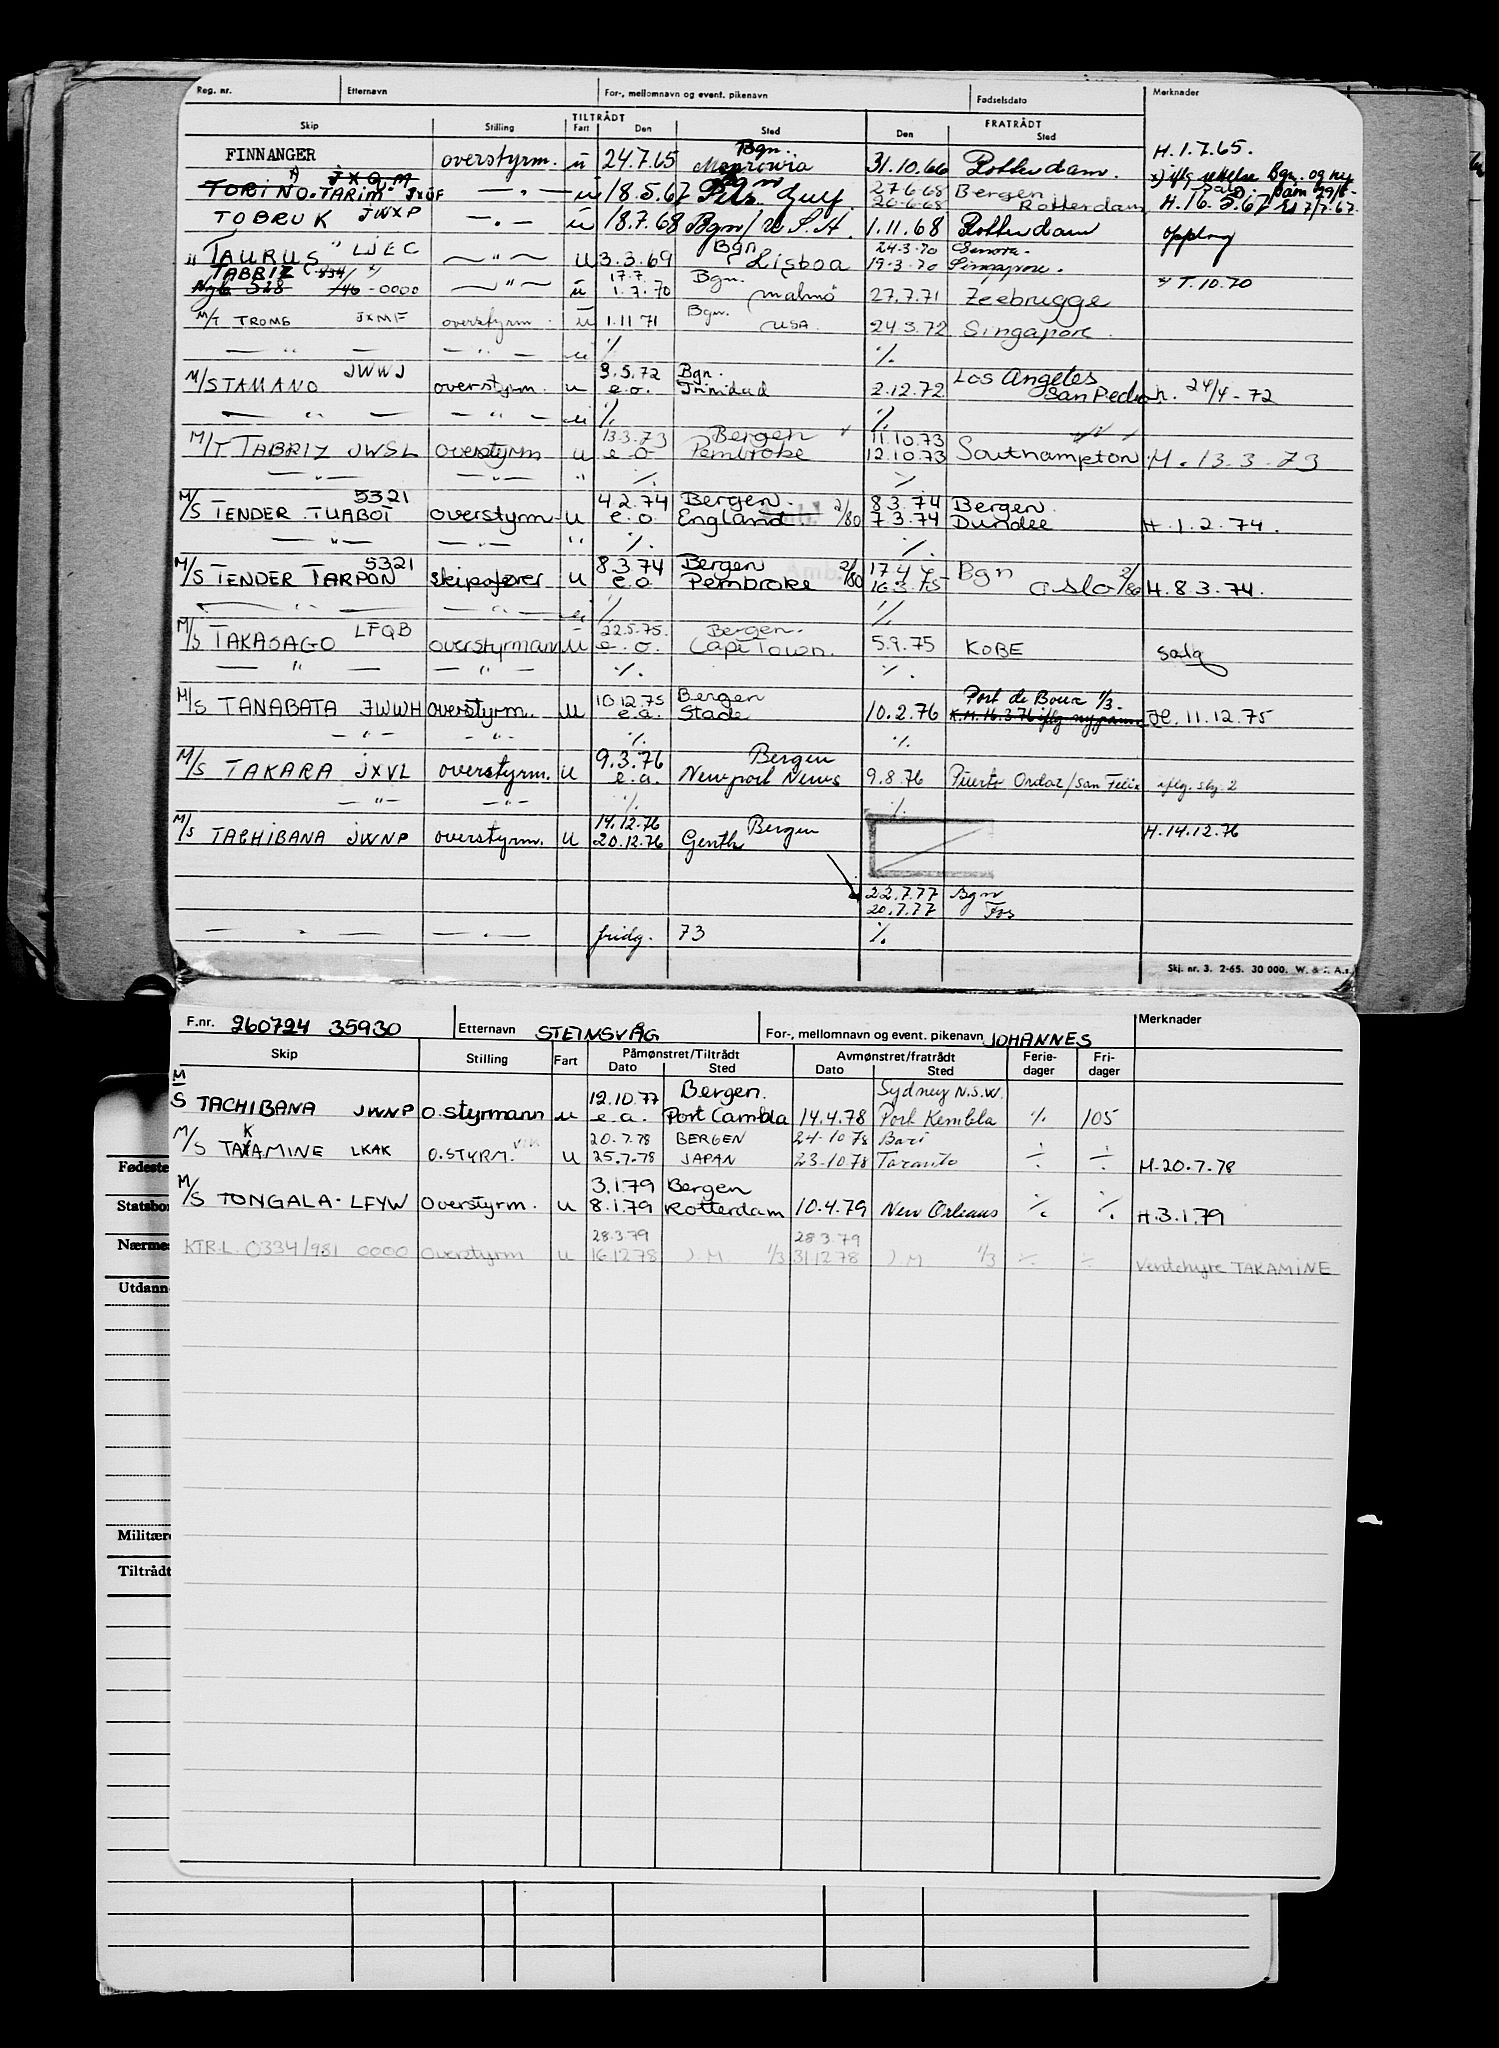 Reg. nr. Etternavn For-, mellomnavn og event. pikenavn Fødselsdato Merknader
TILTRÅDT FRATRÅDT
Skip Stilling Fart Den Sted Den Sted
FINNANGER overstyrm. u 24.7.65 Bgn. Monrovia 31.10.66 Rotterdam. H. 1.7.65.
JXQM
TORINO. TARIM JXGF — " — u 18.5.67 Pers. Gulf. 27.6.68 Bergen
20.6.68 Rotterdam H. 16.5.67
TOBRUK JWXP — " — u 18.7.68 Bgn/U.S.A. 1.11.68 Rotterdam opplag
" TAURUS LJEC — " — u 3.3.69 Bgn Lisboa 24.3.70 Genova.
19.3.70 Singapore.
TABBIZ
Nyb 528 0000 — " — u 17.7.
1.7.70 Bgn. Malmö 27.7.71 Zeebrugge T. 10.70
M/T TROMS JXMF overstyrm. u 1.11 71 Bgn. USA. 24.3.72 Singapore.
— " — — " — u ./. ./.
M/S TAMANO JWWJ overstyrm. u 3.5.72 Bgn.
e.o. Trinidad 2.12.72 Los Angeles
San Pedro h. 24/4-72
— " — — " — u ./. ./.
M/T TABRIZ JWSL overstyrm u 13.3.73 Bergen 11.10.73
e.o Pembroke 12.10.73 Southampton H. 13.3.73
— " — — " — " ./. ./.
M/S TENDER TUABOT 5321 overstyrm. u 4.2.74 Bergen. 8.3.74 Bergen
e.o England 2/80 7.3.74 Dundee H. 1.2.74.
— " — — " — " ./. ./.
M/S TENDER TARPON 5321 Skipsfører u 8.3.74 Bergen Bgn
e.o Pembroke 2/80 16.3.75 Oslo 2/80 H. 8.3.74.
./. ./.
M/S TAKASAGO LFQB overstyrmann u 22.5.75. Bergen.
e.o. Cape Town. 5.9.75 KOBE Salg
— " — — " — ./. ./.
M/S TANABATA JWWH overstyrm. u 10.12.75 Bergen
e.a. Stade 10.2.76 Port de Bouc 1/3. H. 11.12.75
— " — — " — ./. ./.
M/S TAKARA JXVL overstyrm. u 9.3.76 Bergen
e.a. Newport News 9.8.76 Puerto Ordaz/San Felix iflg. skj. 2
— " — — " — ./. ./.
M/S TACHIBANA JWNP overstyrm. u 14.12.76 Bergen
20.12.76 Genth H. 14.12.76
22.7.77 Bgn
20.7.77 Fos
— . — — . — fridg. 73 ./.
Skj. nr. 3. 2-65. 30 000. W. &
F.nr. 260724 35930 Etternavn STEINSVÅG For-, mellomnavn og event. pikenavn JOHANNES Merknader
Skip Stilling Fart Påmønstret/Tiltrådt Avmønstret/fratrådt Ferie-dager Fri-dager
Dato Sted Dato Sted
M/S TACHIBANA JWNP O.styrmann u 12.10.77 Bergen. Sydney N.S.W.
e.a. Port Cambla 14.4.78 Port Kembla ./. 105
M/S TAKAMINE LKAK O.STYRM. u 20.7.78 BERGEN 24.10 78 Bari
25.7.78 JAPAN 23.10 78 Taranto ./. ./. H-20.7.78
M/S TONGALA. LFYW Overstyrm. u 3.1.79 Bergen
8.1.79 Rotterdam 10.4.79 New Orleans ./. ./. H.3.1.79
KTR.L. 0334/981 0000 Overstyrm u 28.3.79 28.3.79
16.12.78 J.M 1/3 31.12.78 J.M 1/3 ./. ./. Ventehyre TAKAMINE
Fødeste
Statsbor
Nærmes
Utdann
Militære
Tiltrådt